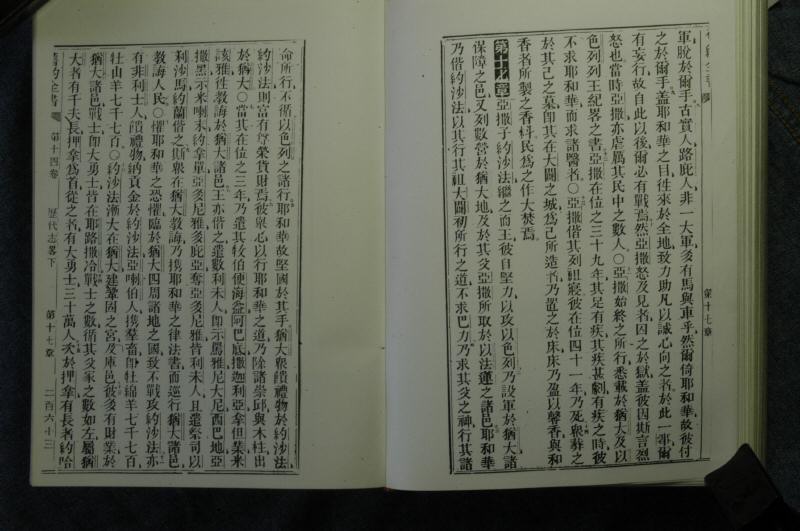 軍脫於爾手古實人路庇人非一大軍多有馬與車乎然爾倚耶和華故彼付
之於爾手蓋耶和華之目徃來於全地致力助凡以誠心向之者於此一事爾
有妄行故自此以後爾必有戰焉然亞撒怒及見者因之於獄蓋彼因斯言烈
怒也當時亞撒亦虐厲其民中之數人〇亞撒始終之所行悉載於猶大及以
色列列王紀畧之書亞撒在位之三十九年其足有疾其疾甚劇有疾之時彼
不求耶和華而求諸醫者〇亞撒偕其列祖寢彼在位四十一年乃死衆葬之
於其己之墓卽其在大闢之城爲己所造者乃置之於床床乃盈以馨香與和
香者所製之香料民爲之作大焚焉
第十七章亞撒子約沙法繼之而王彼自堅力以攻以色列乃設軍於猶大諸
保障之邑又列數營於猶大地及於其父亞撒所取於以法蓮之諸邑耶和華
乃偕約沙法以其行其祖大闢初所行之道不求巴力乃求其父之神行其諸
第十七章
命所行不循以色列之諸行耶和華故堅國於其手猶大衆饋禮物於約沙法
約沙法則富有尊榮貨財焉彼舉心以行耶和華之道乃除諸崇邱與木柱出
於猶大〇當其在位之三年乃遣其牧伯便海盆阿巴底撒迦利亞拿但業米
該雅徃教誨於猶大諸邑王亦偕之遣數利未人卽示馬雅尼大尼西巴地亞
撒黑示米喇末約拿單亞多尼雅多庇亞
利沙馬約蘭偕之斯衆在猶大教誨乃攜耶和華之律法書而巡行猶大諸邑
教誨人民〇懼耶和華之恐懼臨於猶大四周諸地之國致不戰攻約沙法亦
有非利士人饋禮物納貢金於約沙法亞喇伯人攜羣畜卽牡綿羊七千七百
牡山羊七千七百〇約沙法漸大在猶大建鞏固之宮及庫邑彼多有財業於
猶大諸邑戰士卽大勇士皆在耶路撒冷戰士之數循其父家之數如左屬猶
大者有千夫長押拿爲首從之者有大勇士三十萬人次於押拿有長者約哈
第十四卷 歷代志畧下 第十七章 二百六十三